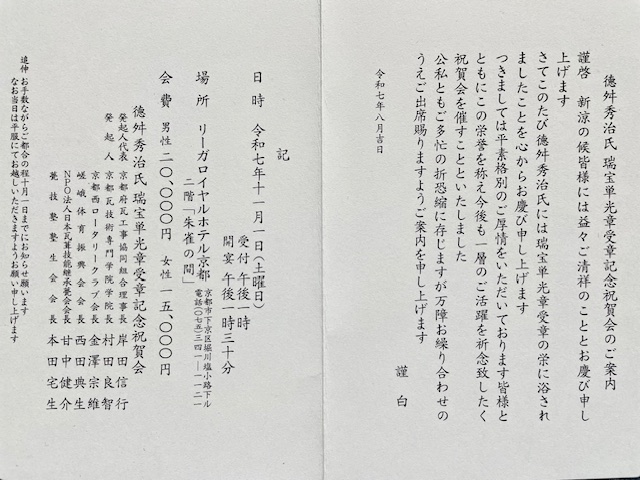 德舛秀治氏 瑞宝単光章受章記念祝賀会のご案内
謹啓 新涼の候皆様には益々ご清祥のこととお慶び申し
上げます
さてこのたび德舛秀治氏には瑞宝単光章受章の栄に浴され
ましたことを心からお慶び申し上げます
つきましては平素格別のご厚情をいただいております皆様と
ともにこの栄誉を称え今後も一層のご活躍を祈念致したく
祝賀会を催すことといたしました
公私ともご多忙の折恐縮に存じますが万障お繰り合わせの
うえご出席賜りますようご案内申し上げます
謹白
令和七年八月吉日
記
日時 令和七年十一月一日(土曜日)
受付 午後一時
開宴 午後一時三十分
場所 リーガロイヤルホテル京都
京都市下京区堀川塩小路下ル
電話(〇七五)三四一―一一二一
二階「朱雀の間」
会費 男性 二〇、〇〇〇円 女性 一五、〇〇〇円
德舛秀治氏 瑞宝単光章受章記念祝賀会
発起人代表 京都府瓦工事協同組合理事長 岸田信行
発起人 京都瓦技術専門学院学院長 村田良智
京都西ロータリークラブ会長 金澤宗維
嵯峨体育振興会会長 西田典生
NPO法人日本瓦葺技能継承甍会会長 甘中健介
甍技塾塾生会会長 本田宅生
追伸 お手数ながらご都合の程十月一日までにお知らせ願います
なお当日は平服にてお越しいただきますようお願い申し上げます